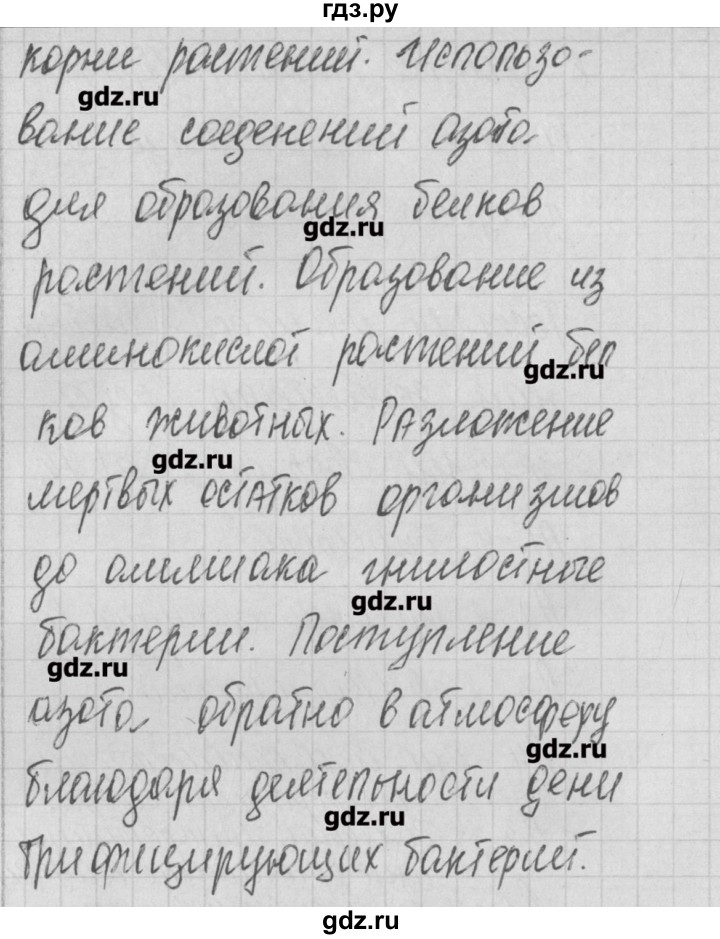 гдз.ру
корни растений. Использо-
gdz.ru
вание соеденений азота
для образования белков
gdz.ru
растений. Образование из
аминокислот растений бел
gdz.ru
ков животных. Разложение
gdz.ru
мертвых остатков организмов
до аммиака гнилостные
gdz.ru
бактерии. Поступление
gdz.ru
азота обратно в атмосферу
gdz.ru
благодаря деятельности дени
gdz.ru
трифицирующих бактерий.
gdz.ru